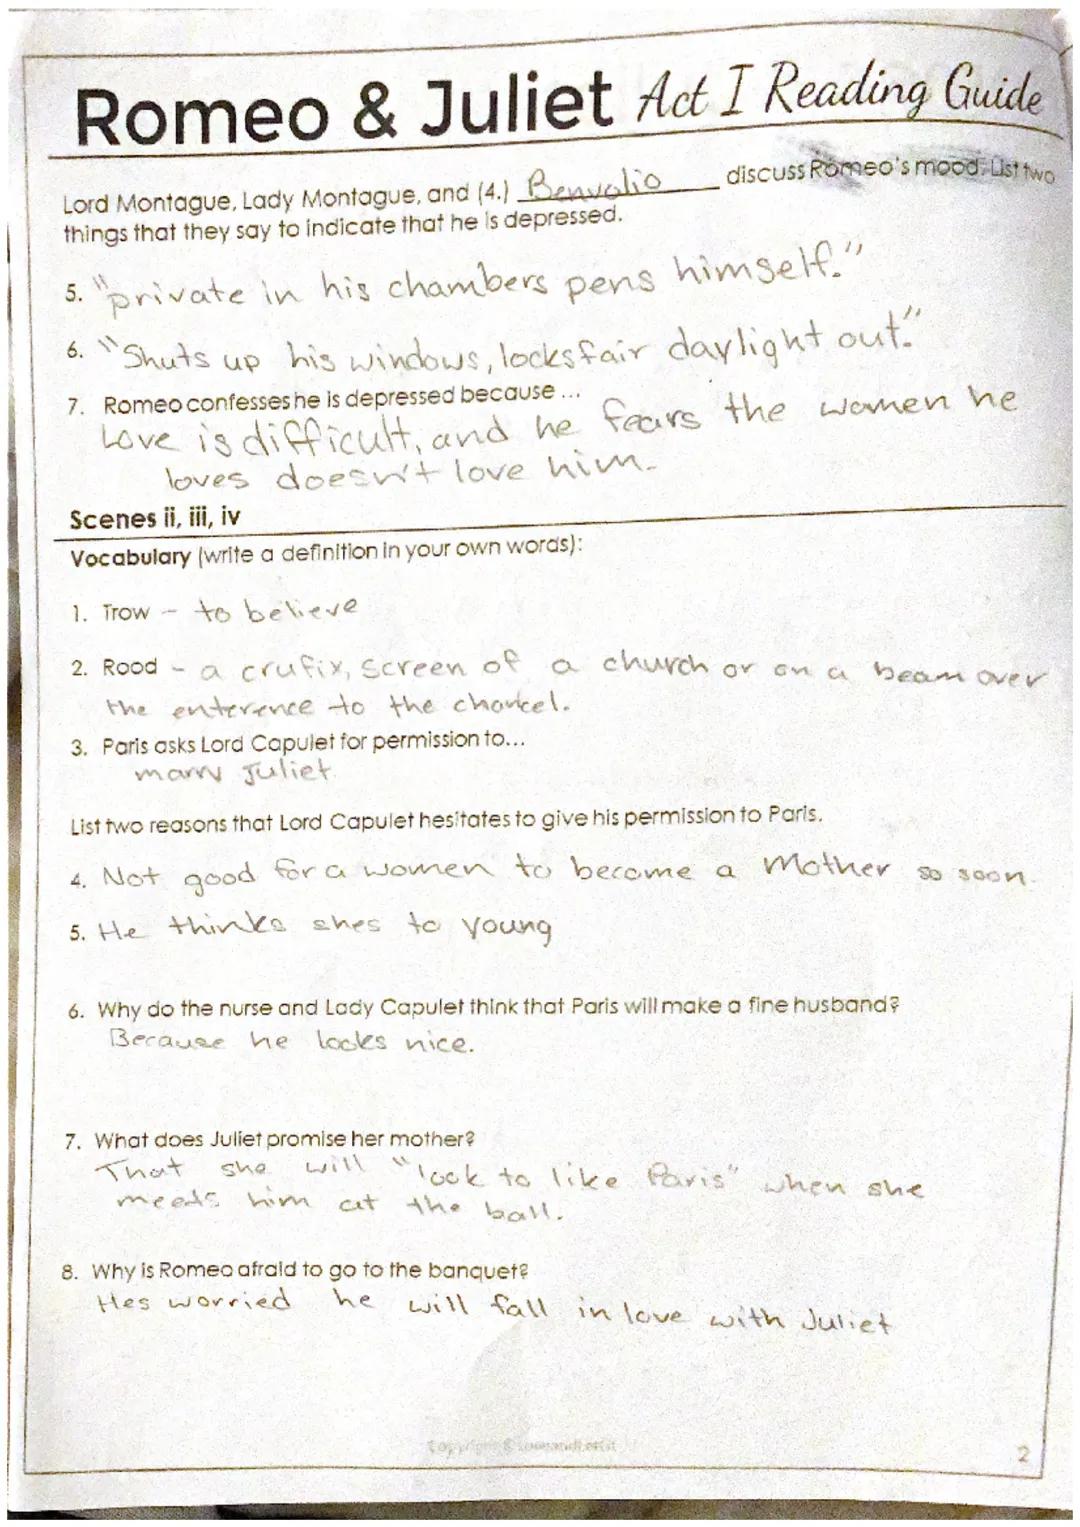 Romeo & Juliet Act I Reading Guide
Lord Montague, Lady Montague, and (4.) Benvolio discuss Romeo's mood. List two
things that they say to indicate that he is depressed.
5. "private in his chambers pens himself."
6. "Shuts up his windows, locks fair daylight out."
7. Romeo confesses he is depressed because ...
Love is difficult, and he fears the women he
loves doesn't love him.
Scenes ii, iii, iv
Vocabulary (write a definition in your own words):
1. Trow - to believe
2. Rood - a crufix, screen of a church or on a beam over
the enterence to the chancel.
3. Paris asks Lord Capulet for permission to...
marry Juliet
List two reasons that Lord Capulet hesitates to give his permission to Paris.
4. Not good for a women to become a Mother so soon.
5. He thinks shes to young
6. Why do the nurse and Lady Capulet think that Paris will make a fine husband?
Because he looks nice.
7. What does Juliet promise her mother?
That she will "look to like Paris" when she
meets him at the ball.
8. Why is Romeo afraid to go to the banquet?
Hes worried he will fall in love with Juliet
Copyright ©
2